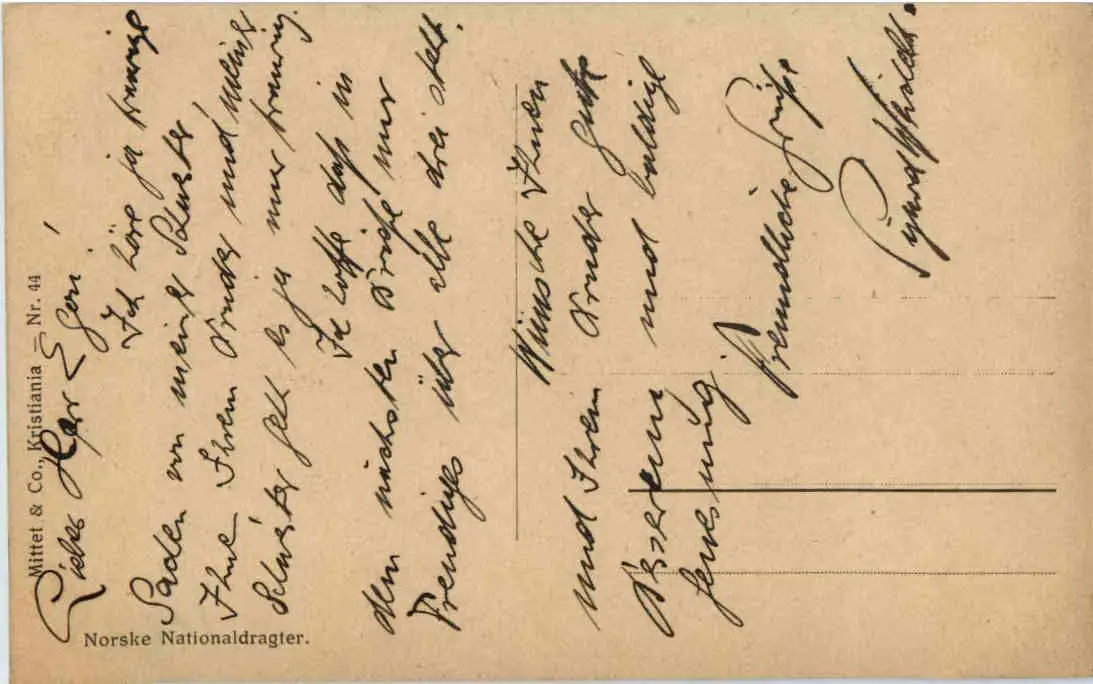 Mittet & Co., Kristiania – Nr. 44
Norske Nationaldragter.
Lieber Herr Gori!
Ich höre ja traurige
Sachen von meiner Schwester
Ihne Ihrem Bruder und meiner
Schwester geht es ja nur traurig.
Ich hoffe daß in
dem nächsten Briefe nur
Freudiges über alle drei steht.
Wünsche Ihnen
und Ihrem Bruder gute
Besserung und baldige
Genesung
Freundliche Grüße